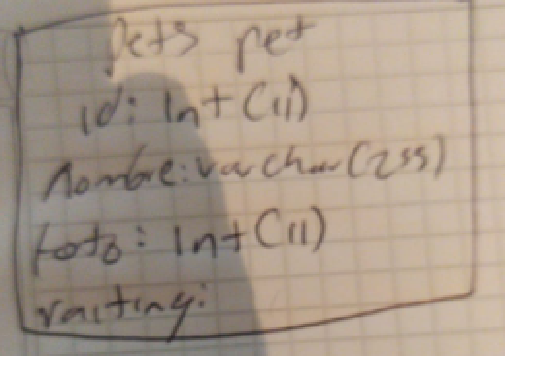 Pets pet
id: Int (11)
nombre: varchar (255)
foto: Int (11)
raiting: